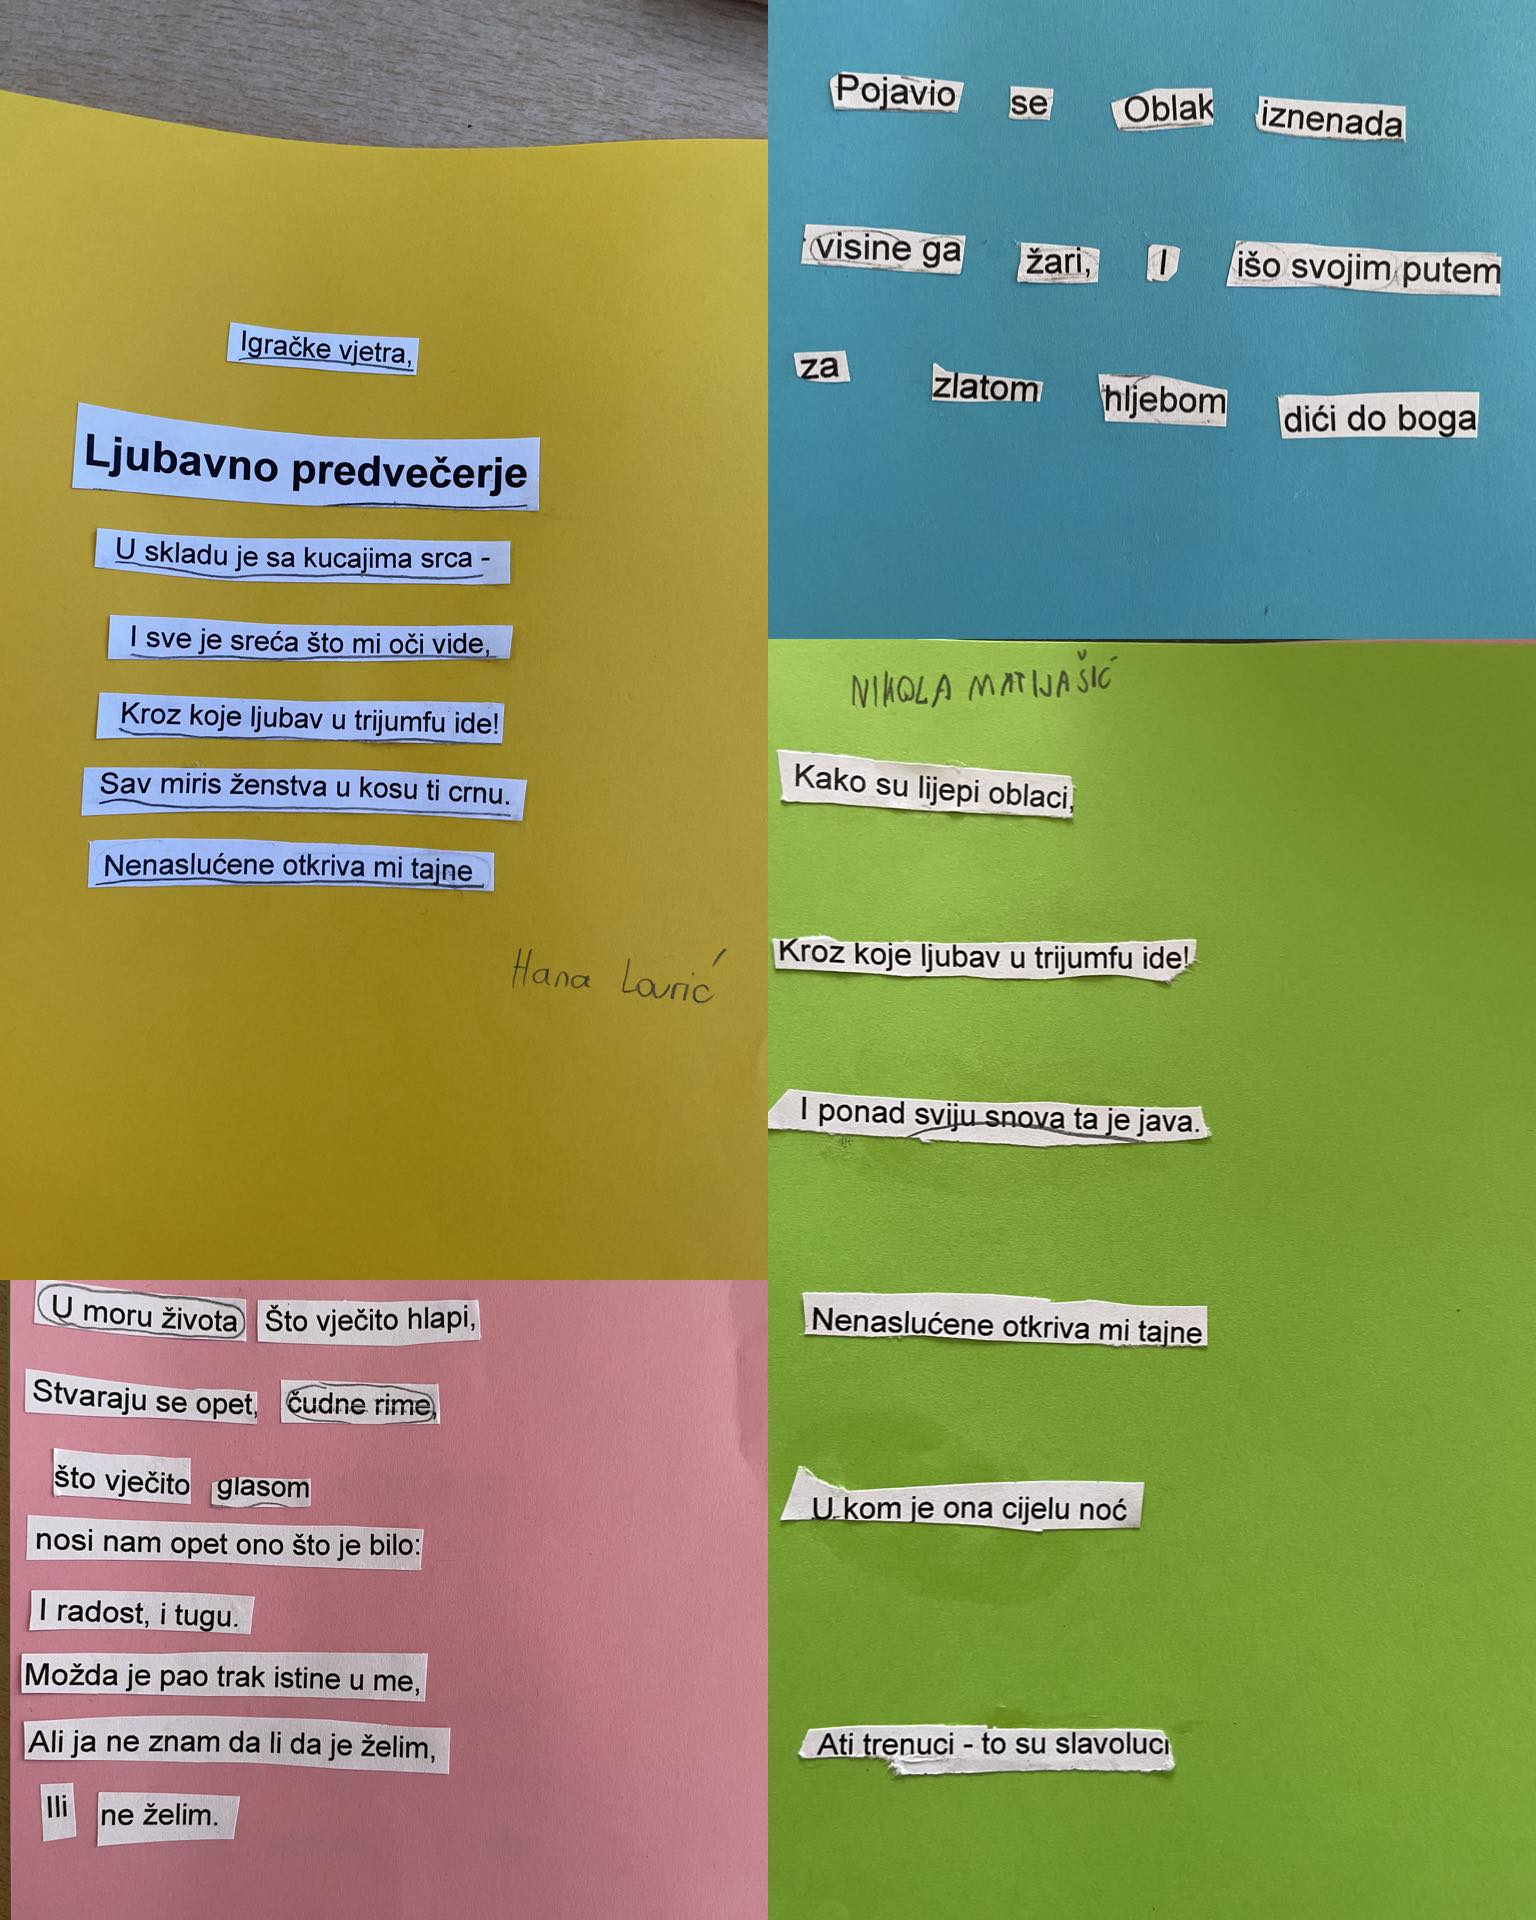 Igračke vjetra,
Ljubavno predvečerje
U skladu je sa kucajima srca -
I sve je sreća što mi oči vide,
Kroz koje ljubav u trijumfu ide!
Sav miris ženstva u kosu ti crnu.
Nenaslućene otkriva mi tajne
Hana Lovrić
Pojavio se Oblak iznenada
visine ga žari, I išo svojim putem
za zlatom hljebom dići do boga
NIKOLA MATIJAŠIĆ
Kako su lijepi oblaci,
Kroz koje ljubav u trijumfu ide!
I ponad sviju snova ta je java.
Nenaslućene otkriva mi tajne
U kom je ona cijelu noć
Ati trenuci - to su slavoluci
U moru života Što vječito hlapi,
Stvaraju se opet, čudne rime,
što vječito glasom
nosi nam opet ono što je bilo:
I radost, i tugu.
Možda je pao trak istine u me,
Ali ja ne znam da li da je želim,
Ili ne želim.